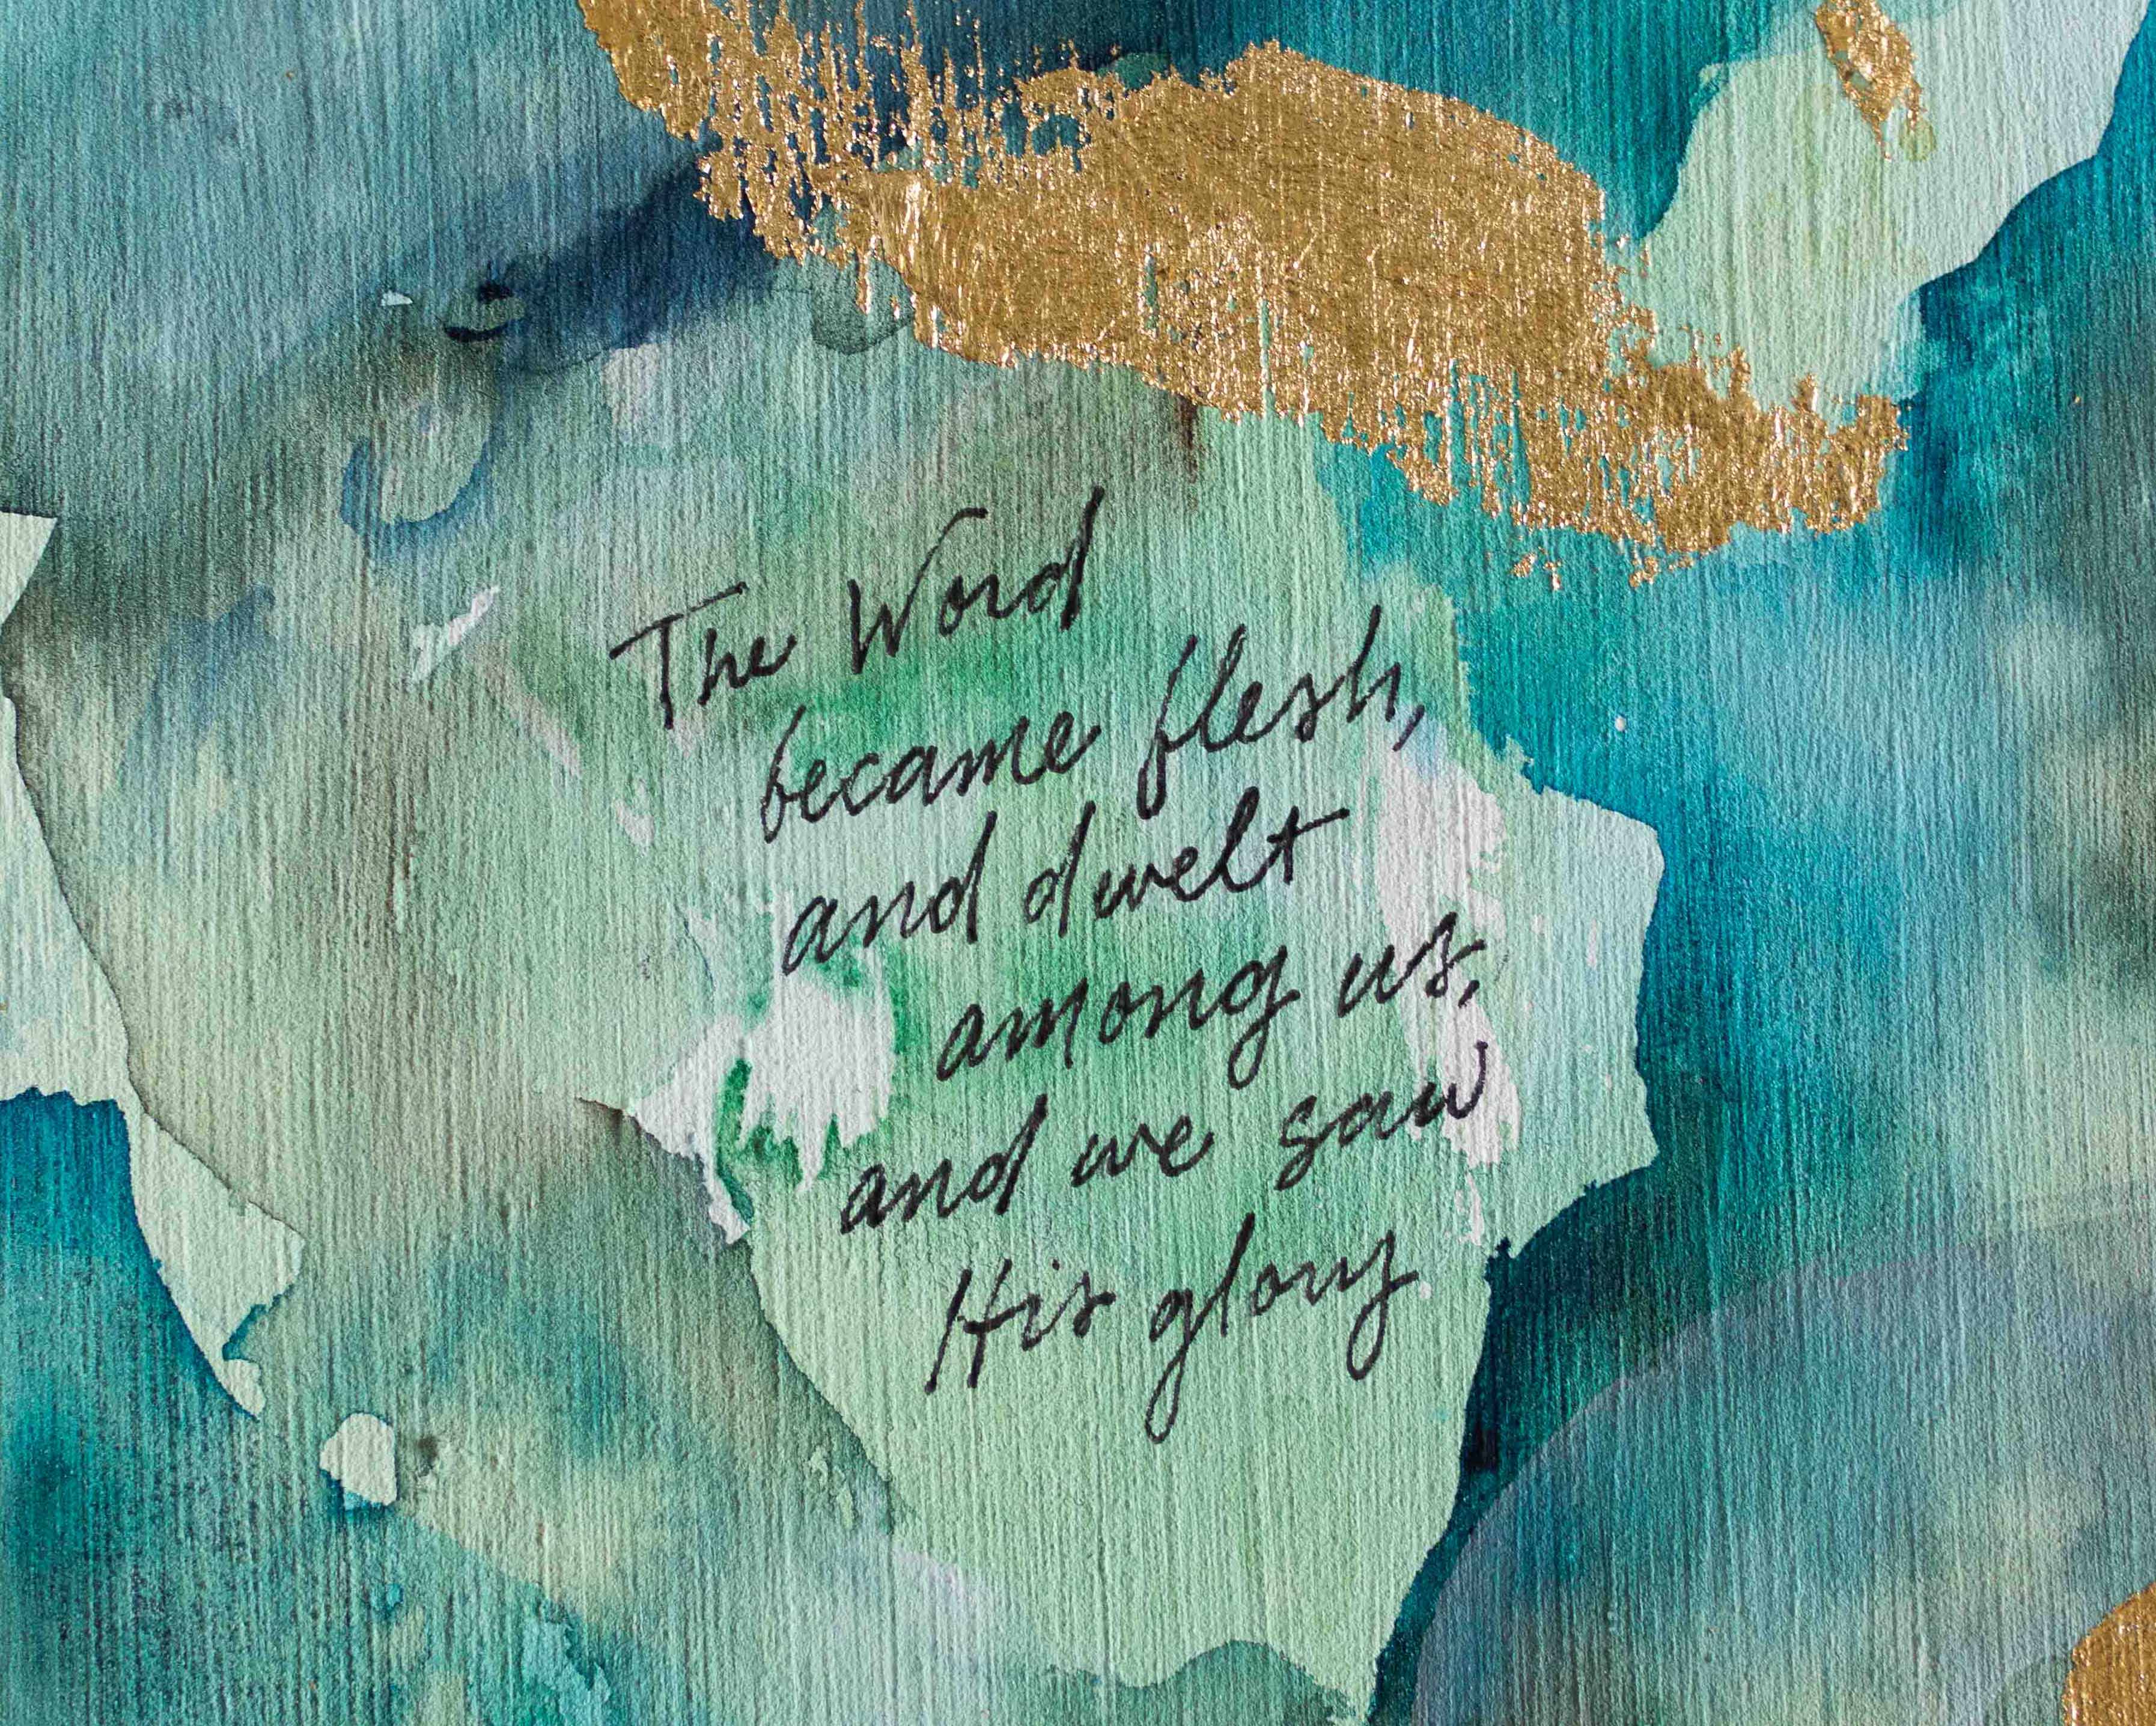 The Word
became flesh,
and dwelt
among us,
and we saw
His glory